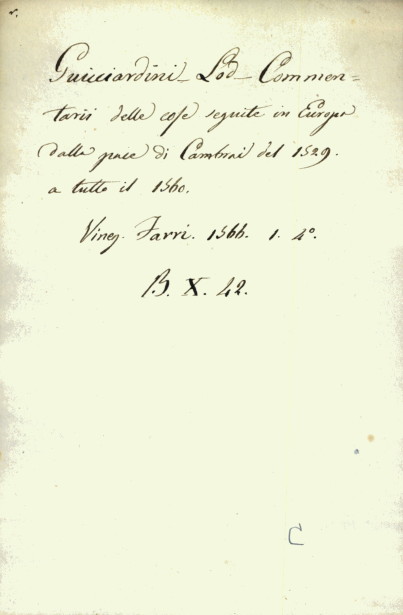 Guicciardini_ Lod_ Commen=
tarii delle cose seguite in Europa
dalla pace di Cambrai del 1529.
a tutto il 1560.
Vineg. Farri. 1566. 1. 4º.
B. X. 42.
C